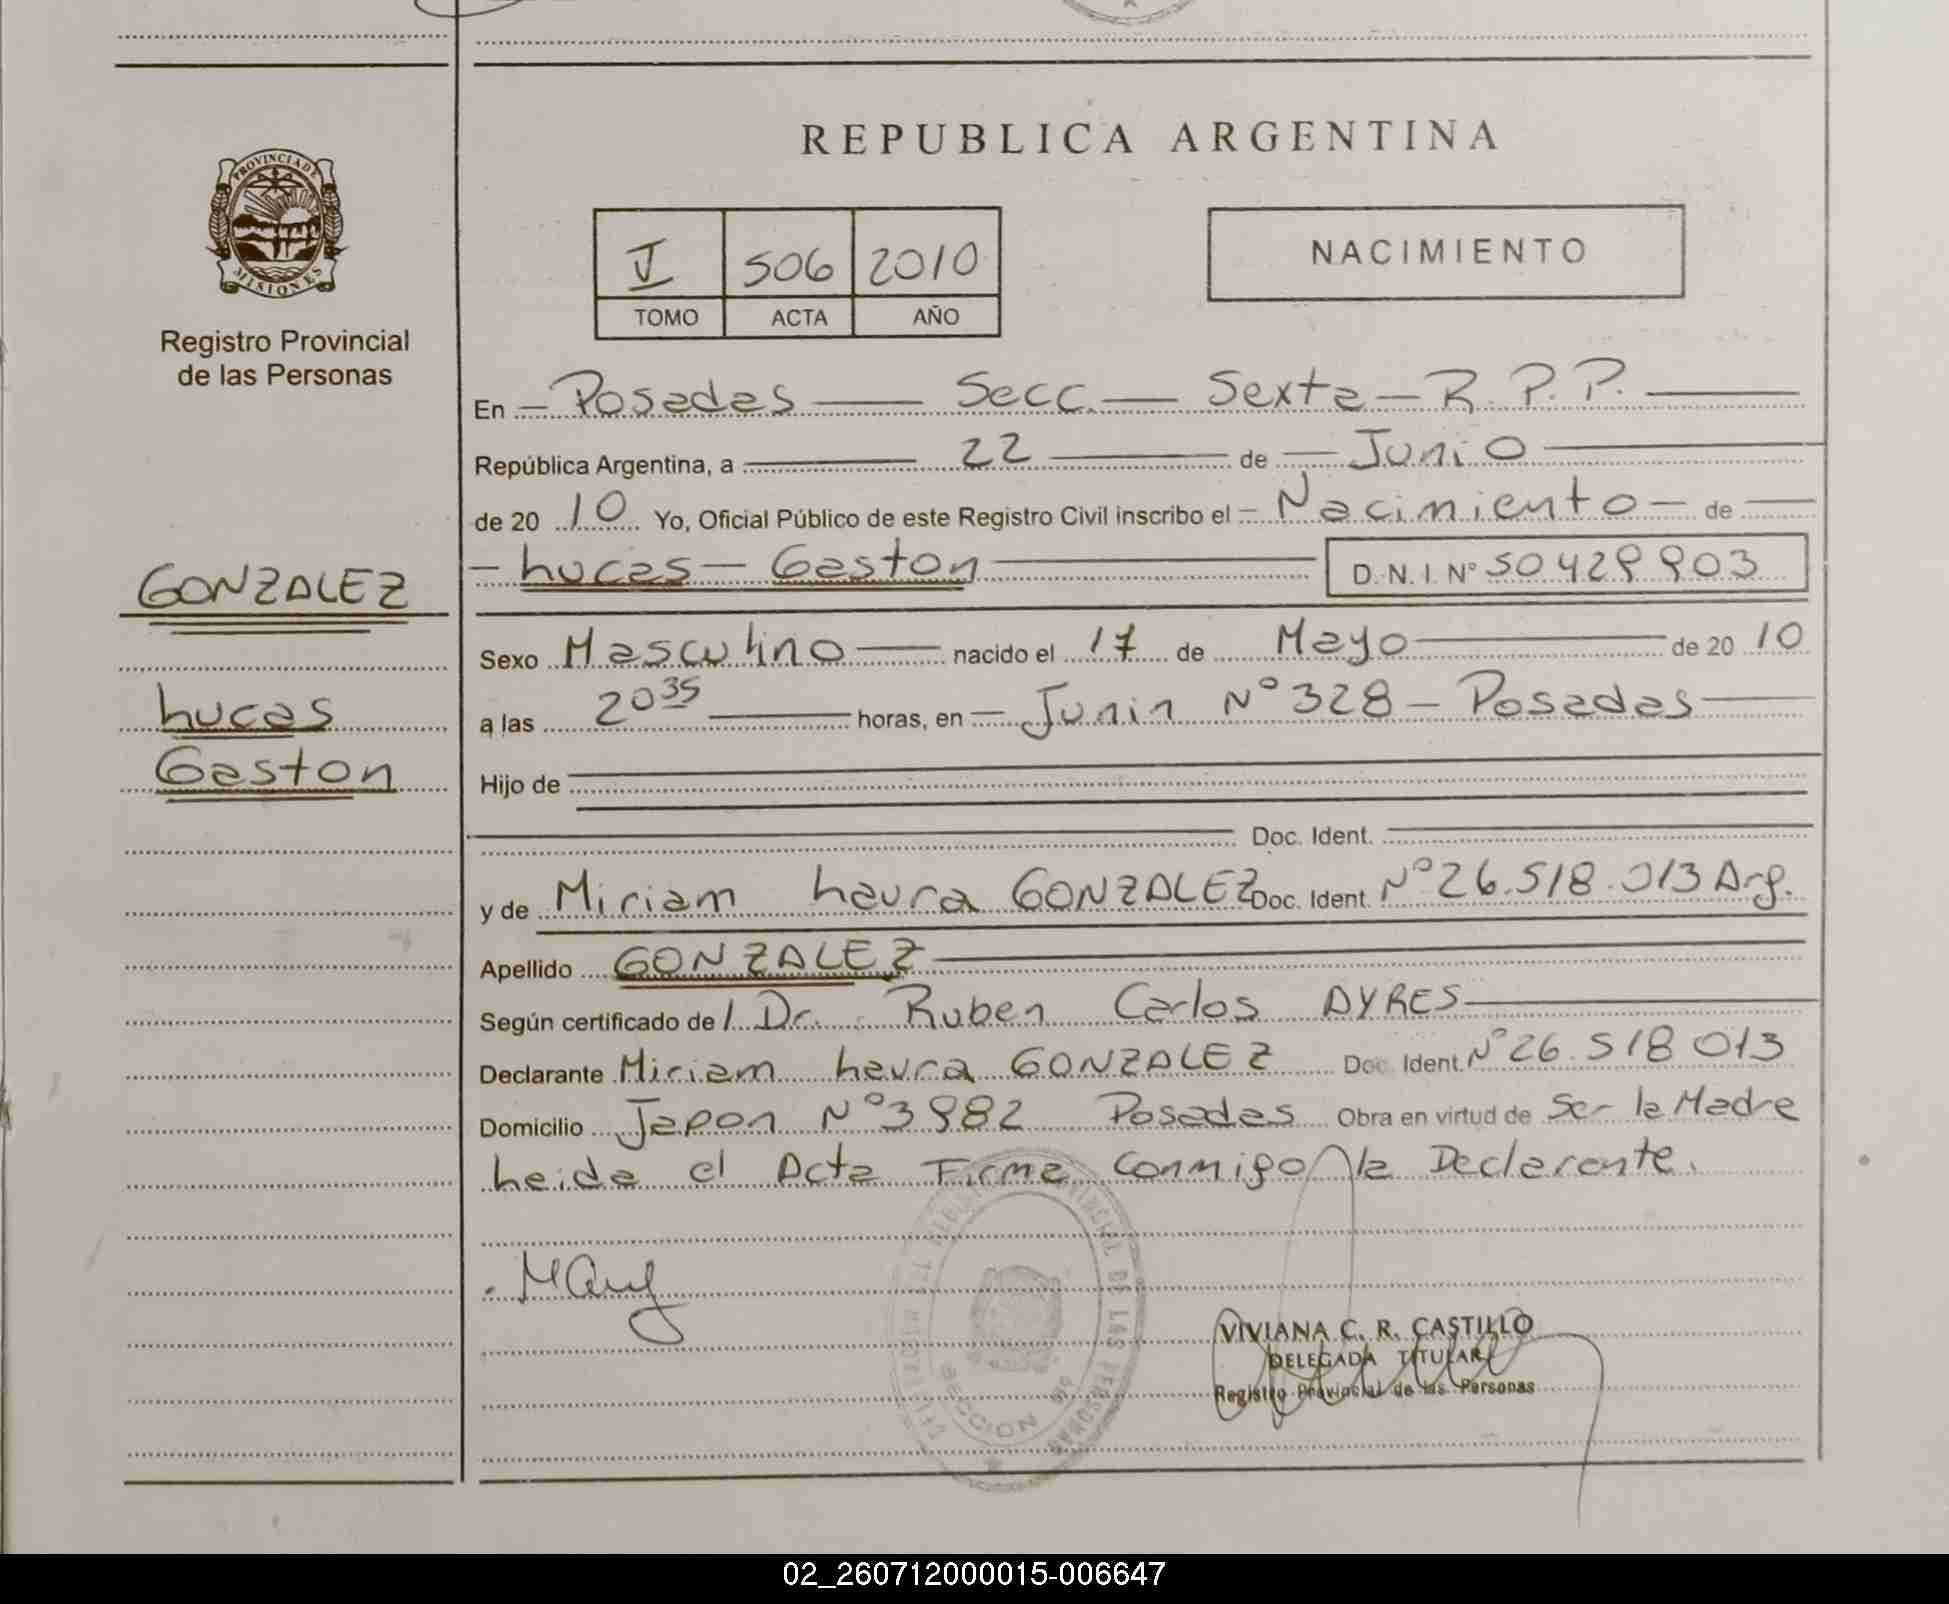 REPUBLICA ARGENTINA
PROVINCIA DE
MISIONES
Registro Provincial
de las Personas
I 506 2010
TOMO ACTA AÑO
NACIMIENTO
En - Posadas — Secc. — Sexta - R. P. P. —
República Argentina, a — 22 — de — Junio —
de 20 10 Yo, Oficial Público de este Registro Civil inscribo el - Nacimiento - de —
- Lucas - Gaston — D.N.I. Nº 50429903
GONZALEZ
Lucas
Gaston
Sexo Masculino — nacido el 17 de Mayo — de 20 10
a las 20 35 — horas, en — Junin Nº 328 - Posadas —
Hijo de —
— Doc. Ident. —
y de Miriam Laura GONZALEZ Doc. Ident. Nº 26.518.013 Arg.
Apellido GONZALEZ —
Según certificado de l Dr. Ruben Carlos AYRES —
Declarante Miriam Laura GONZALEZ Doc. Ident. Nº 26.518 013
Domicilio Japon Nº 3982 Posadas Obra en virtud de Ser la Madre
Leida el Acta Firma Conmigo la Declarante.
VIVIANA C. R. CASTILLO
DELEGADA TITULAR
Registro Provincial de las Personas
PROVINCIAL DE LAS PERSONAS
SECCION
02_260712000015-006647